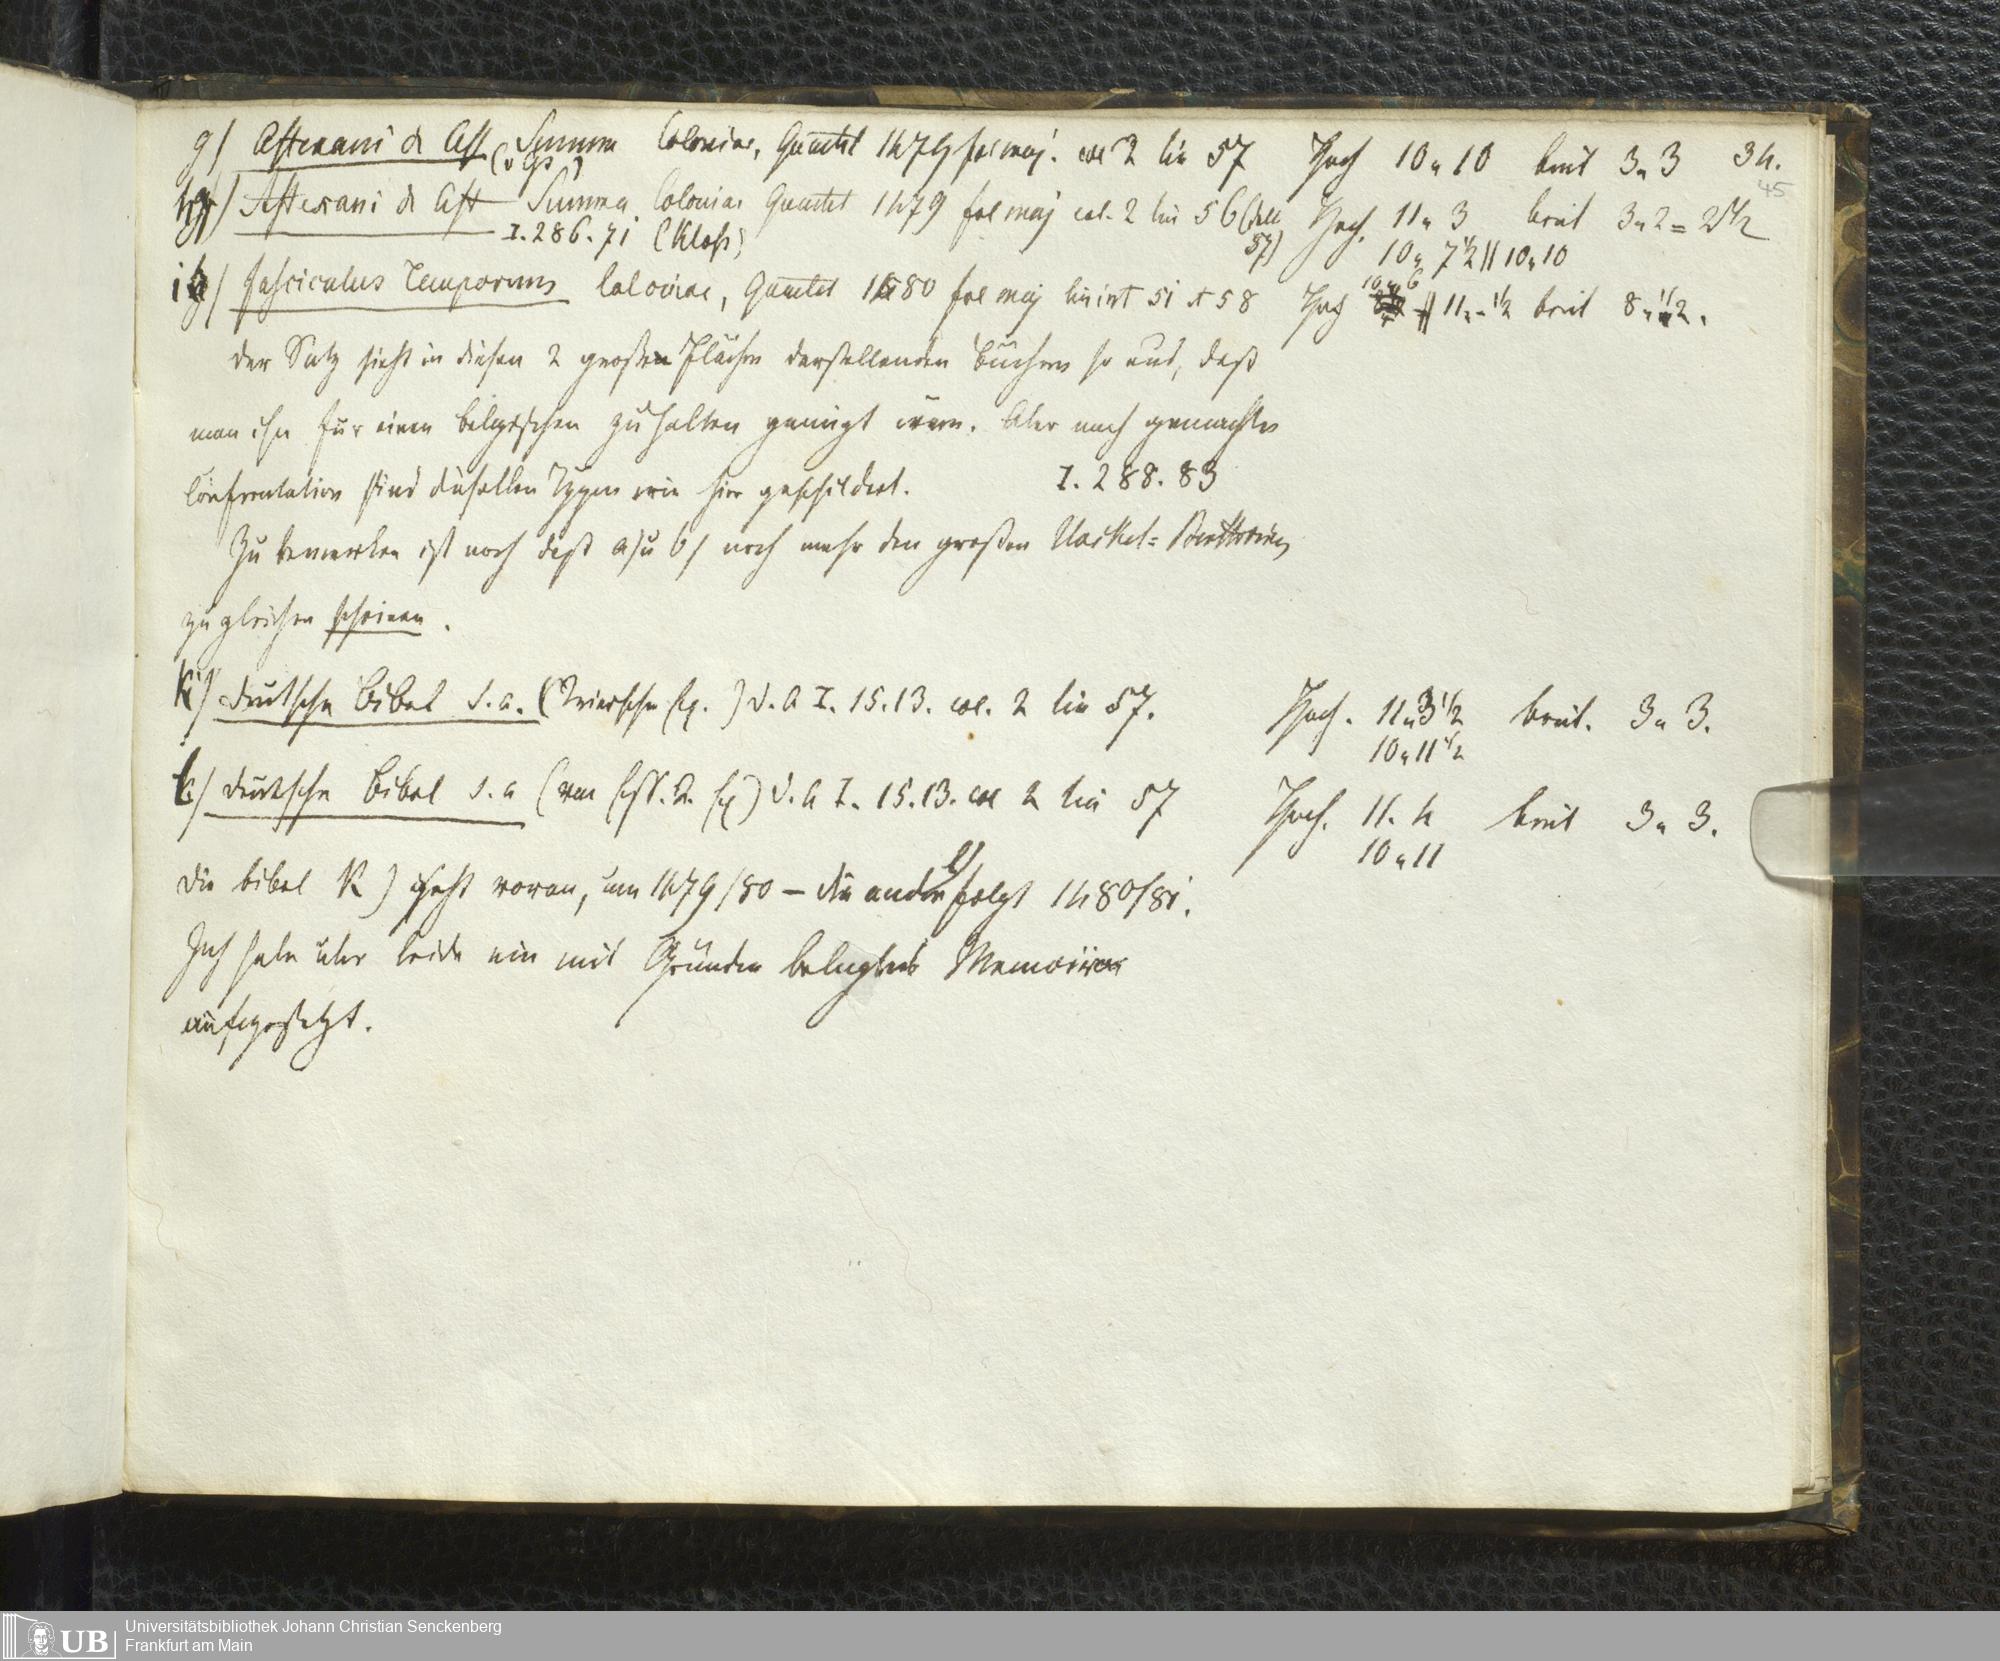 g) Astexani de Ast Summa Coloniae, Quentel 1479 fol maj. col 2 lin 57 Hoch 10„10 breit 3„3 34.
45
h) Astexani de Ast Summa Coloniae Quentel 1479 fol maj col. 2 lin 56 Hoch. 11„3 breit 3„2 = 2 1/2
I. 286. 71 (Kloß) 57) 10„ 7 1/2 || 10„10
i) Fasciculus Temporum Coloniae, Quentel 1480 fol maj lin int 51 et 58 Hoch 10„6 11„-1/2 breit 8„ 1/2.
Der Satz sieht in diesen 2 großen Flächen darstellenden Büchern so aus, daß
man ihn für einen belgischen zu halten geneigt wäre. Aber nach gemachter
Confrontation sind dieselben Typen wie hier geschildert. I. 288. 83
Zu bemerken ist noch daß a) u b) noch mehr den großen
zu gleichen scheinen.
k) Deutsche Bibel s. a. (Triersche Ex.) v. A I. 15. 13. col. 2 lin 57. Hoch. 11„3 1/2 breit. 3„3.
10„11 1/2
l) Deutsche Bibel s. a v. A I. 15. 13. col 2 lin 57 Hoch. 11. 4 breit 3„3.
10„11
Die Bibel K) geht voran, um 1479/80 – die andre l) folgt 1480/81.
Ich habe über beide ein mit Gründen belegtes Memoire
aufgesetzt.
UB
Universitätsbibliothek Johann Christian Senckenberg
Frankfurt am Main